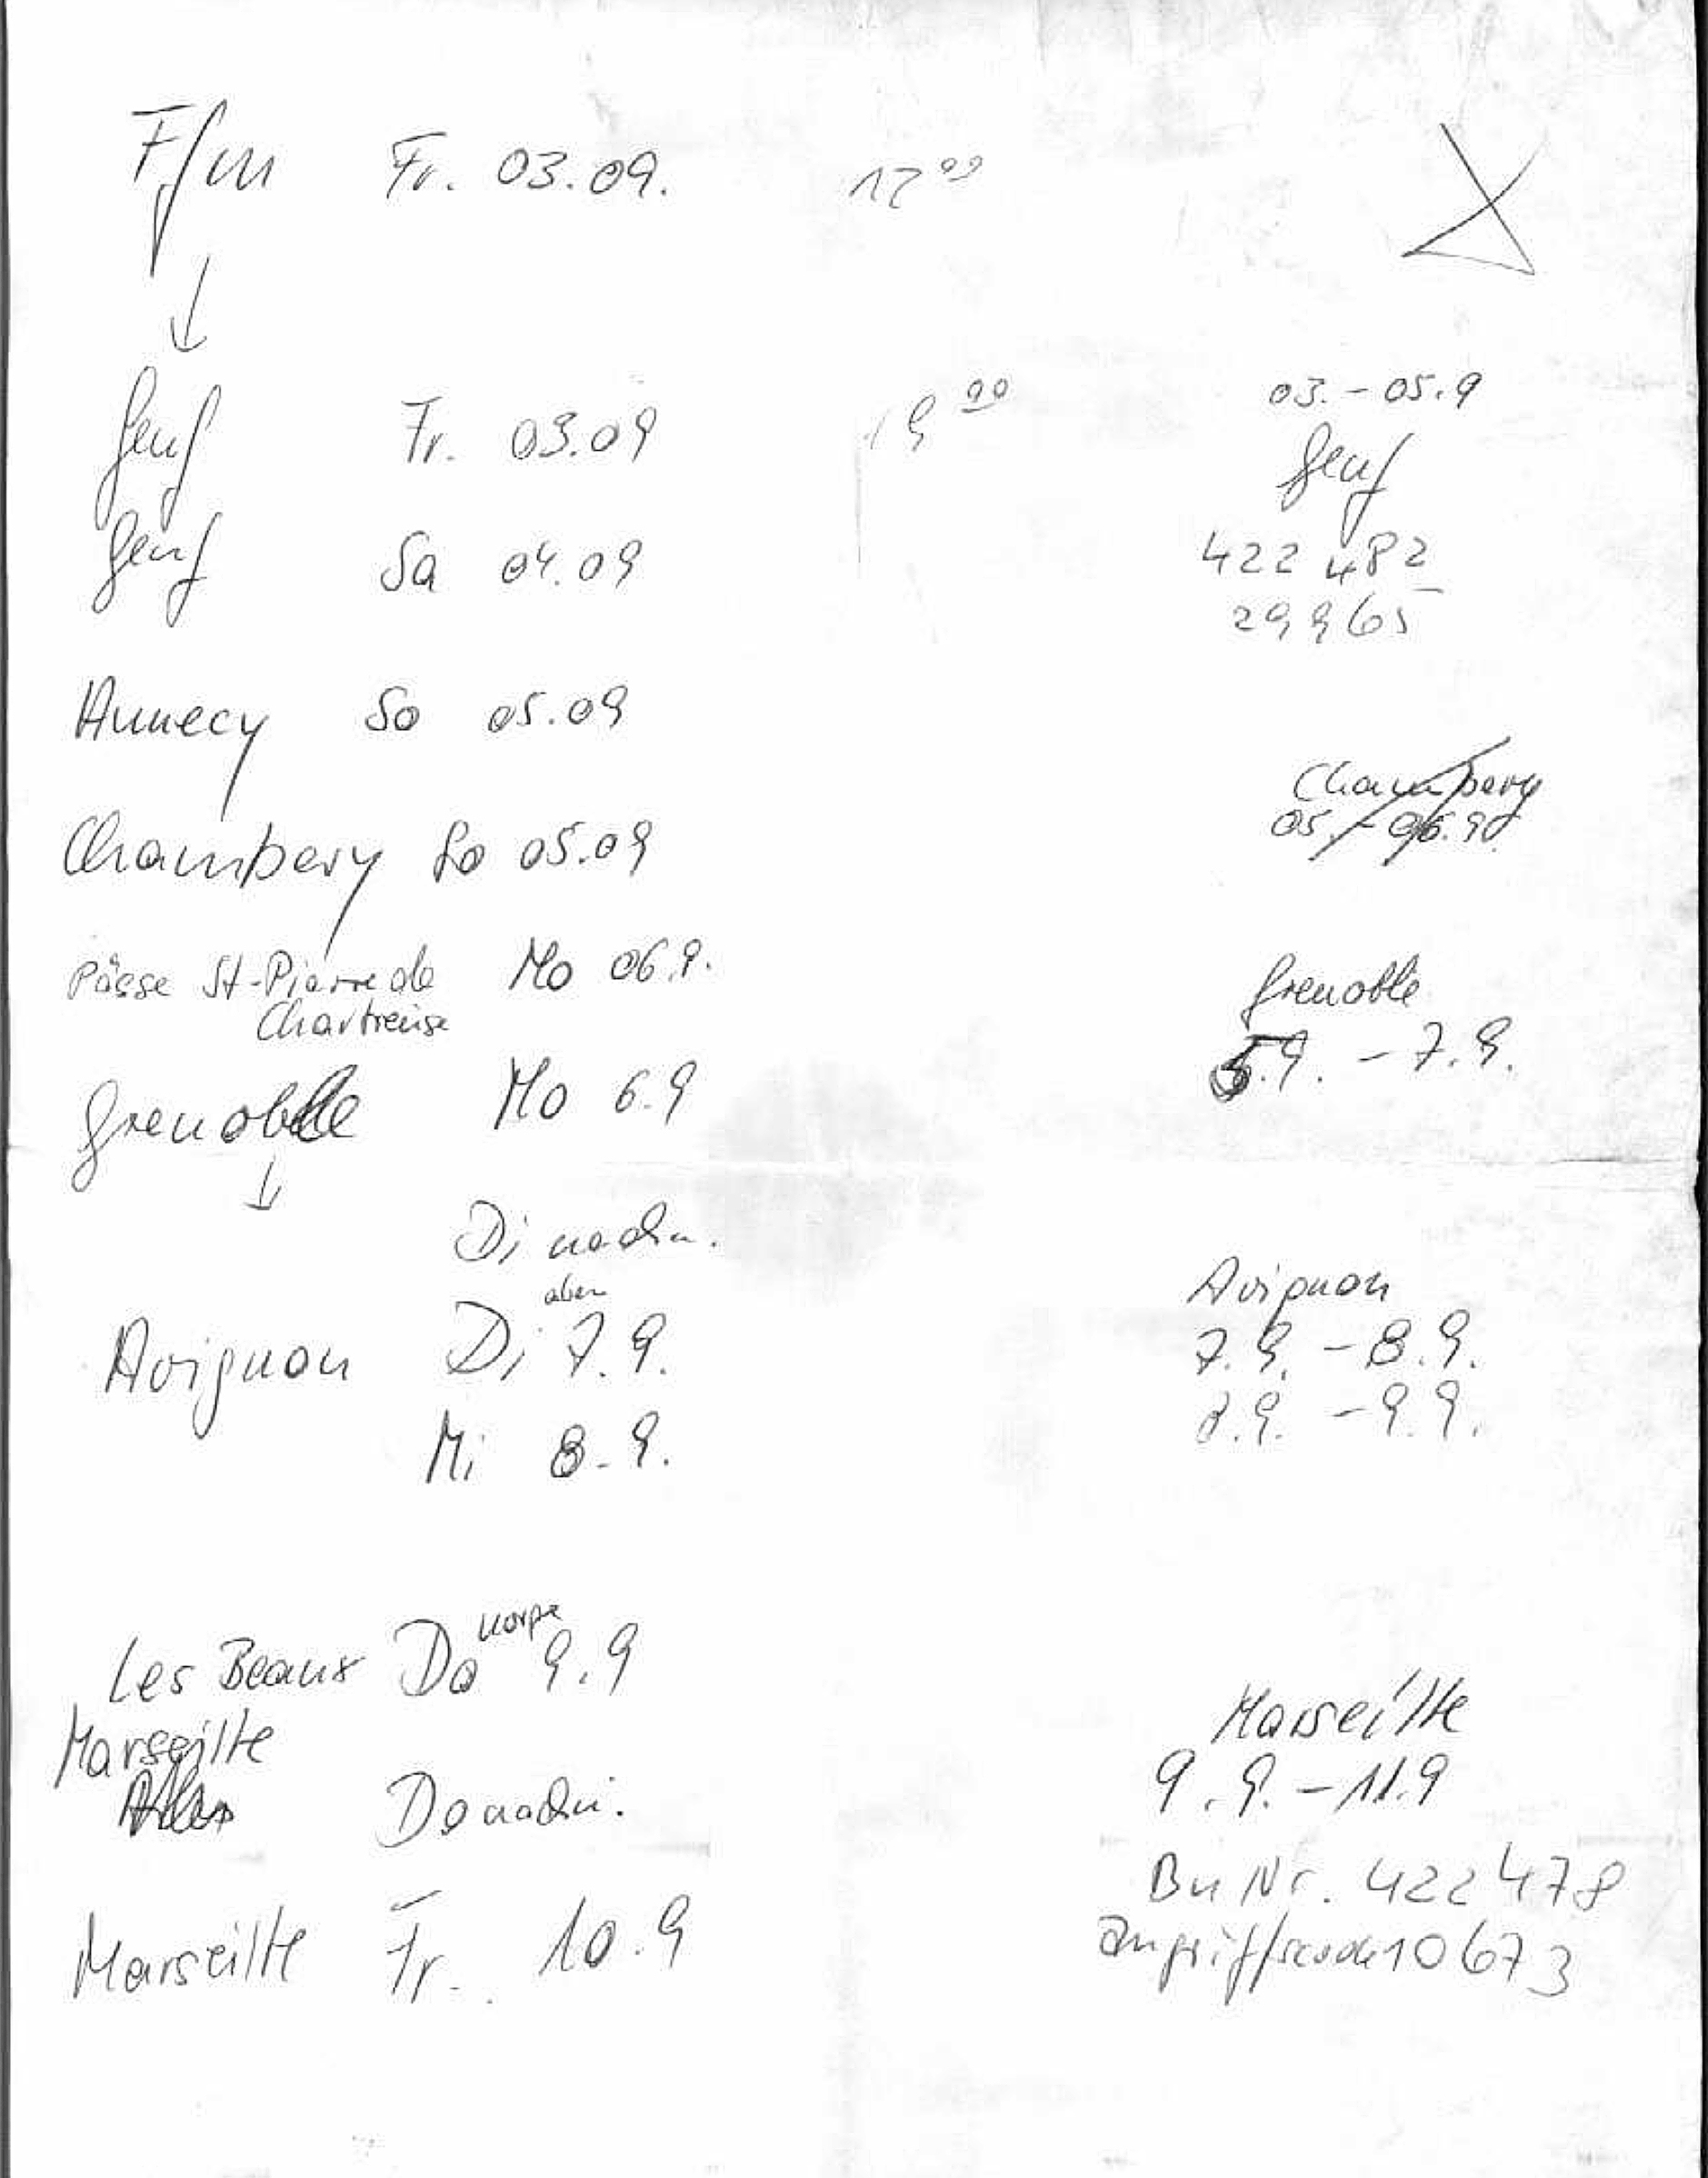 Ffm Fr. 03.09. 17 00
Genf Fr. 03.09 19 00 03. - 05.9
Genf
Genf Sa 04.09 422 482
29965
Annecy So 05.09
Chambery
05. - 06.9.
Chambery So 05.09
Pässe St-Pierre de Chartreuse Mo 06.9.
Grenoble
5.9. - 7.9.
Grenoble Mo 6.9
Di nachm.
aben
Avignon Di 7.9.
Avignon
7.9. - 8.9.
8.9. - 9.9.
Mi 8.9.
Les Beaux Do 9.9
Marseille
Marseille
9.9. - 11.9
Do nachm.
Bu Nr. 422478
Marseille Fr. 10.9
10673